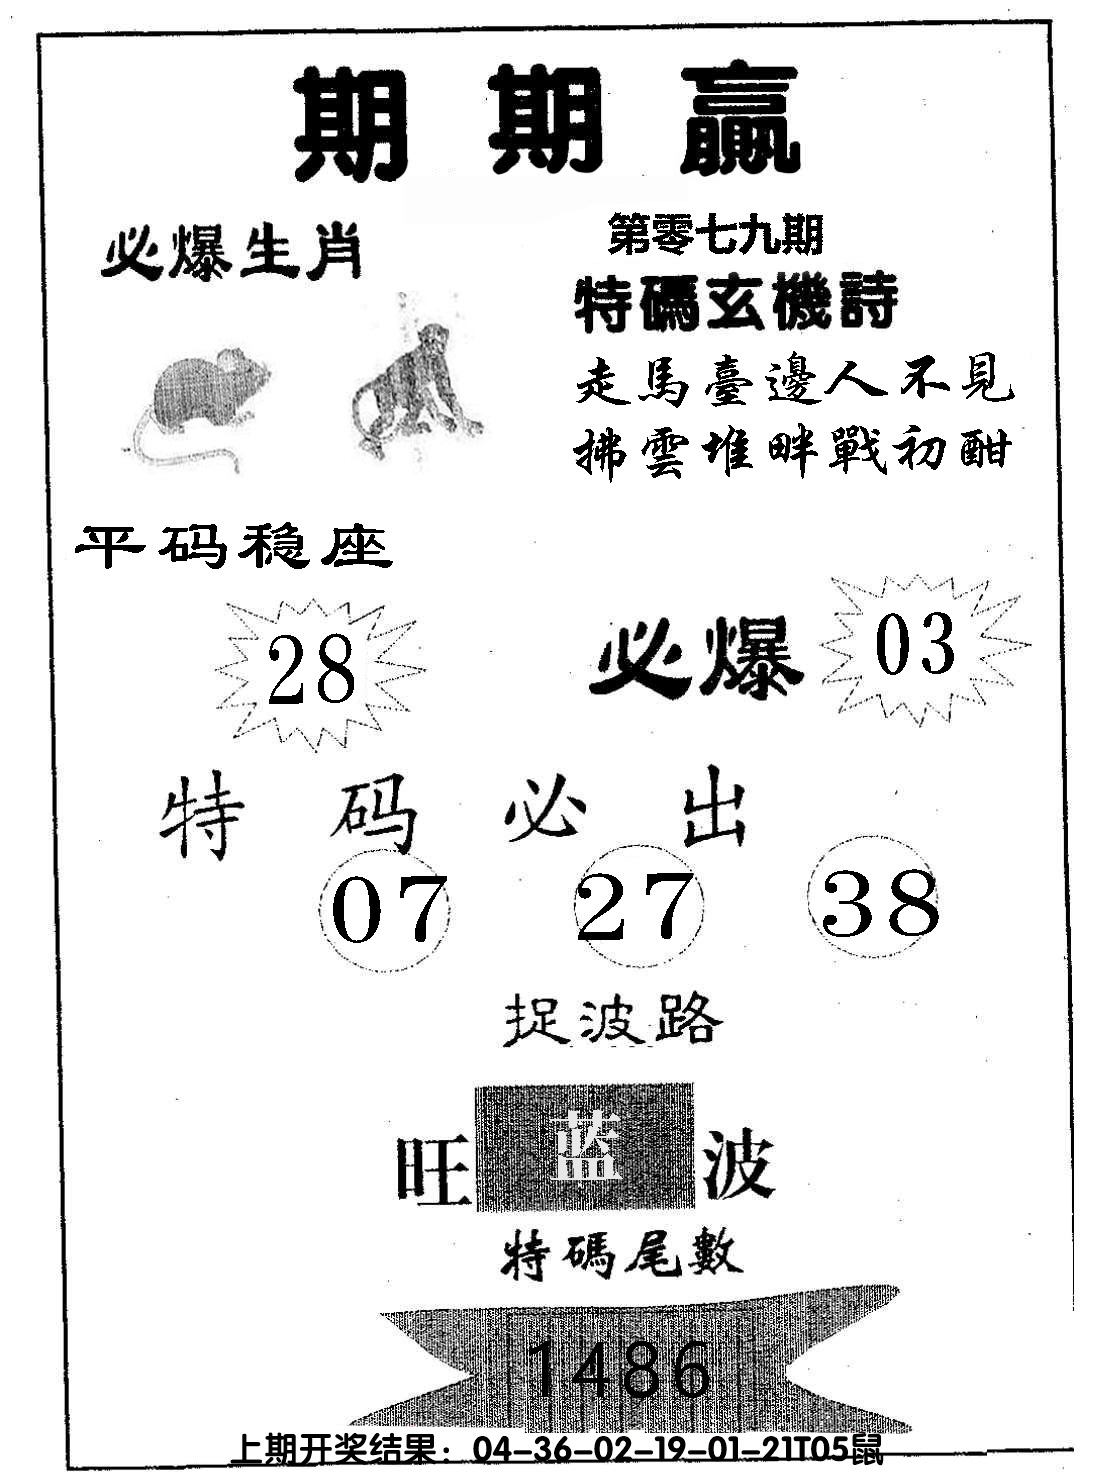 期期赢
必爆生肖
第零七九期
特碼玄機詩
走馬臺邊人不見
拂雲堆畔戰初酣
平码稳座
28
必爆 03
特码必出
07 27 38
捉波路
旺蓝波
特碼尾數
1486
上期开奖结果：04-36-02-19-01-21T05鼠